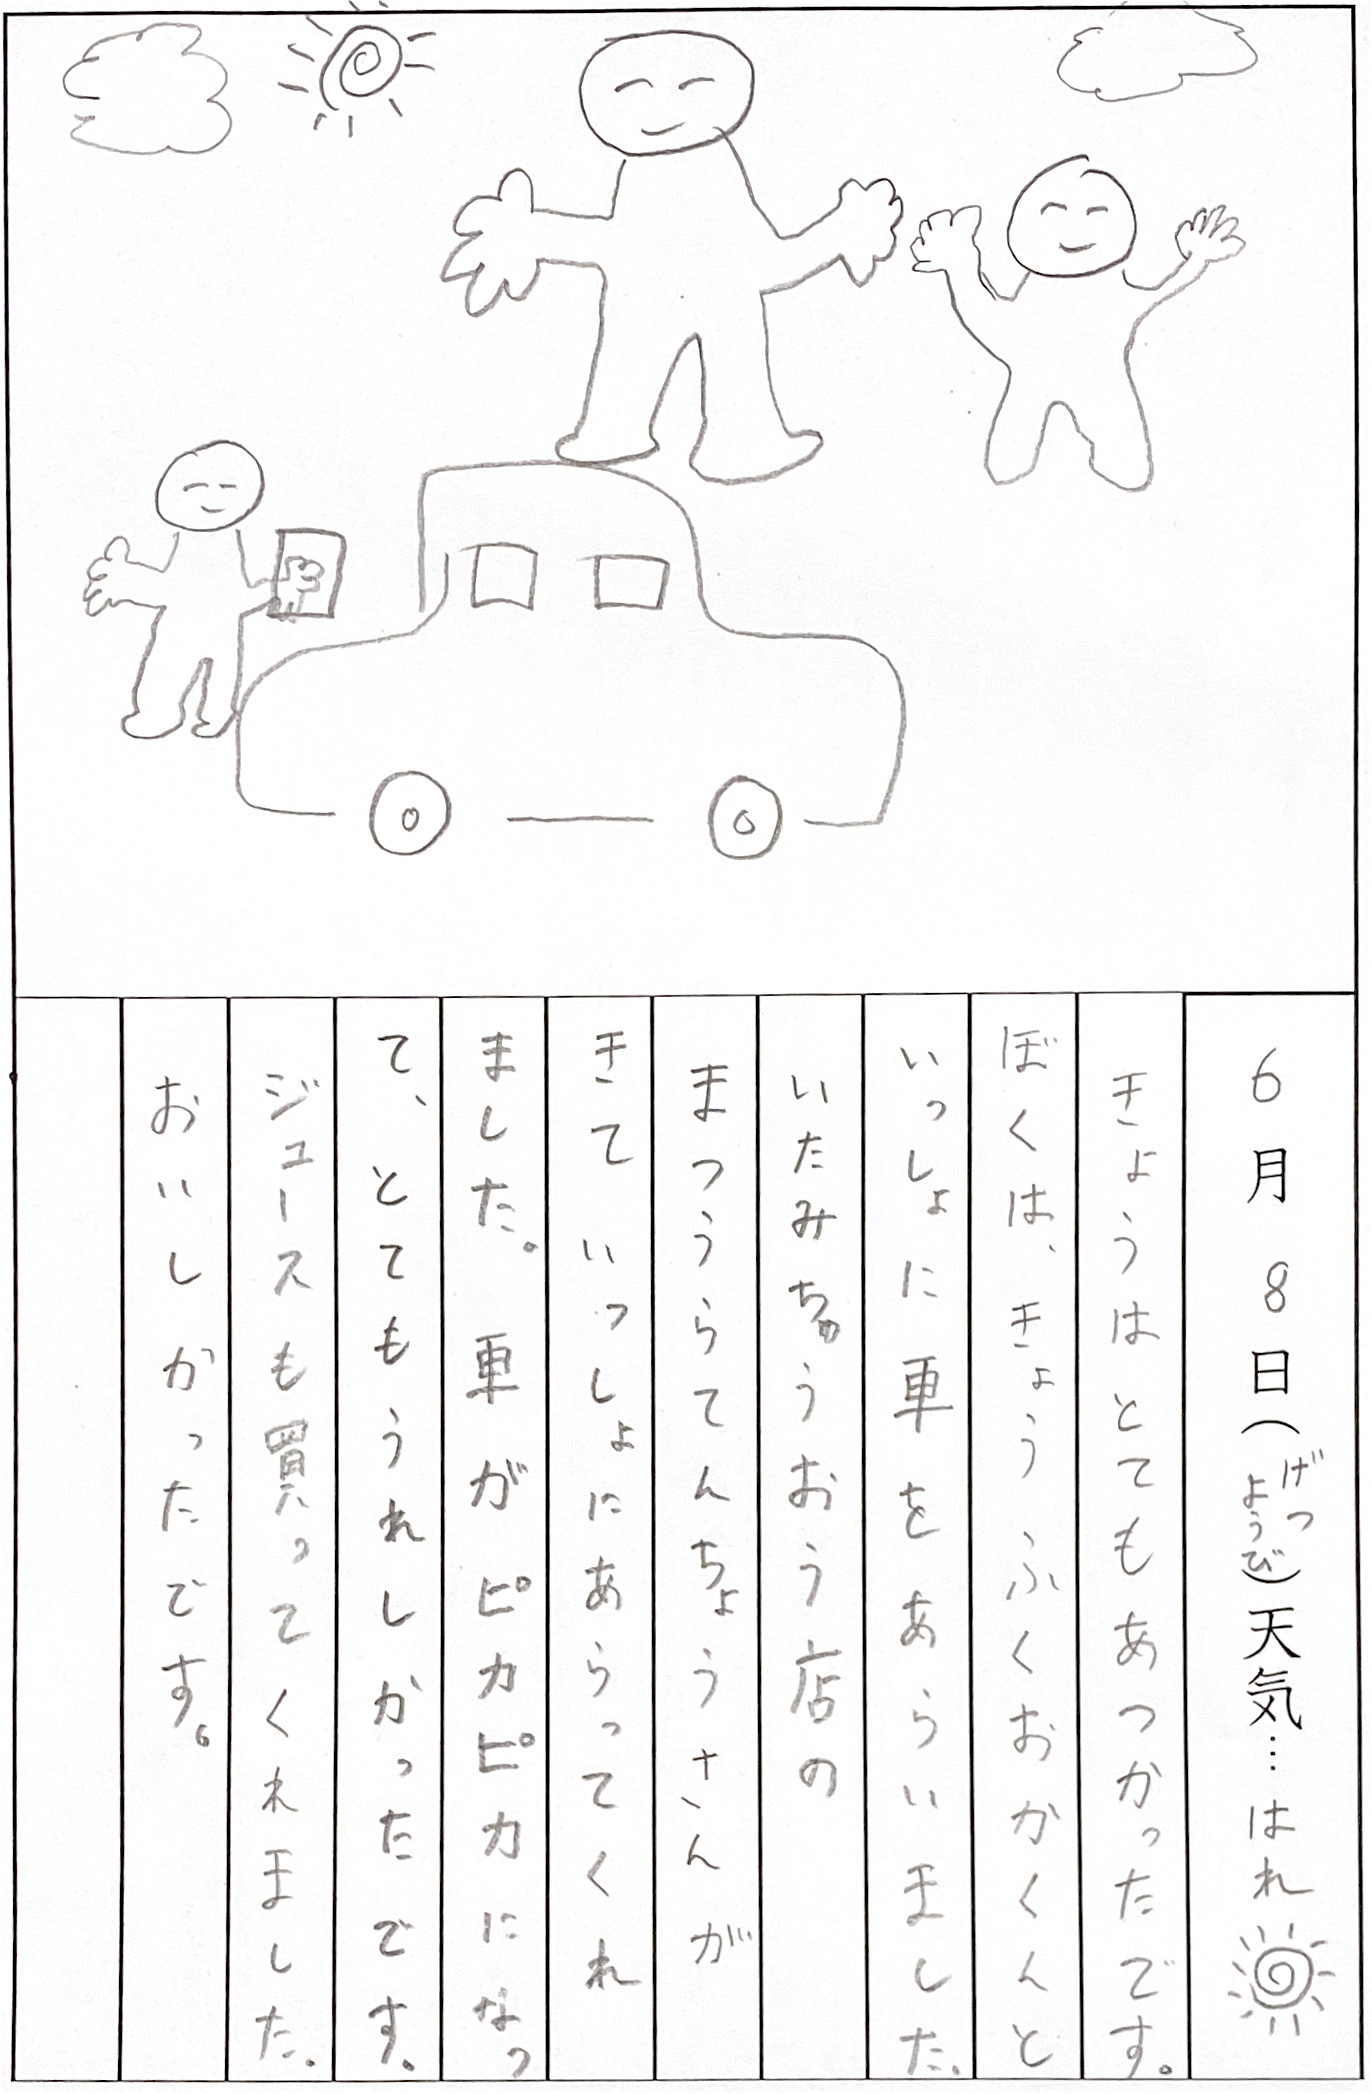 6月8日(げつようび)天気…はれ
きょうはとてもあつかったです。
ぼくは、きょうふくおかくんと
いっしょに車をあらいました。
いたみちゅうおう店の
まつうらてんちょうさんが
きていっしょにあらってくれ
ました。車がピカピカになっ
て、とてもうれしかったです。
ジュースも買ってくれました。
おいしかったです。